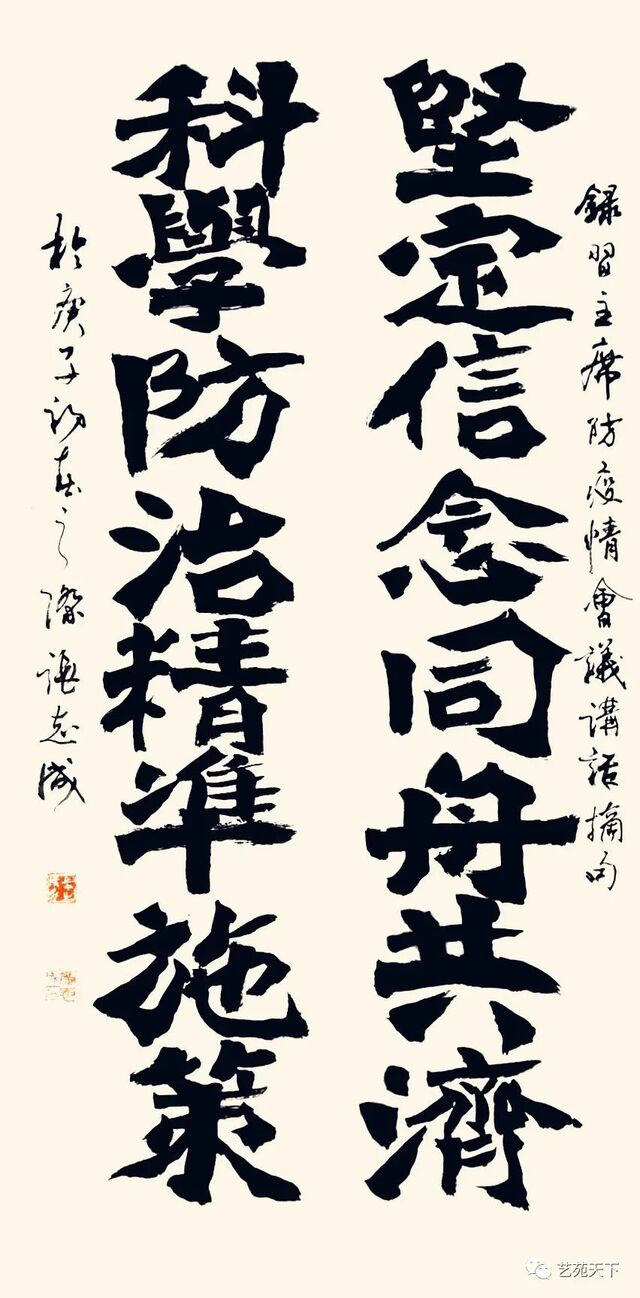 錄習主席防疫情會議講話摘句
堅定信念同舟共濟
科學防治精準施策
於庚子初春之際 志成
艺苑天下